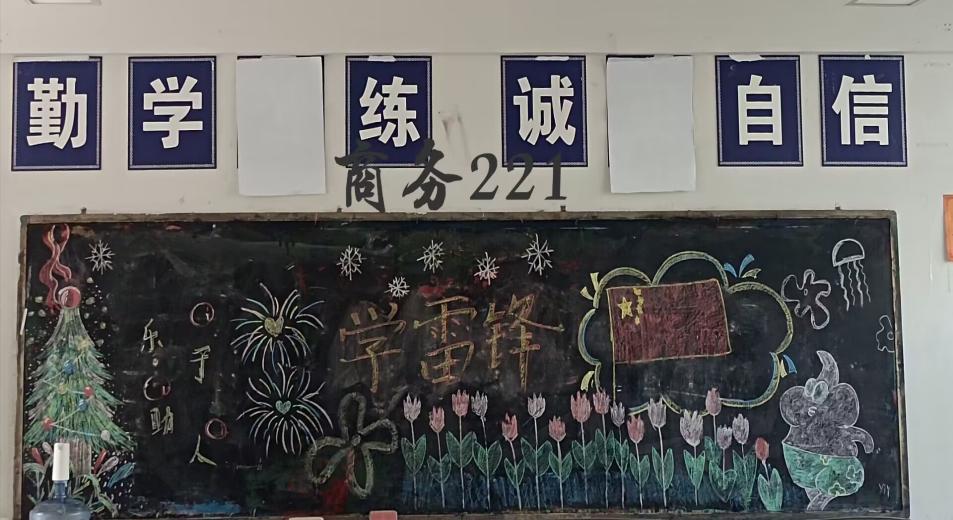 勤学 练 诚 自信
商务221
学雷锋
乐于助人